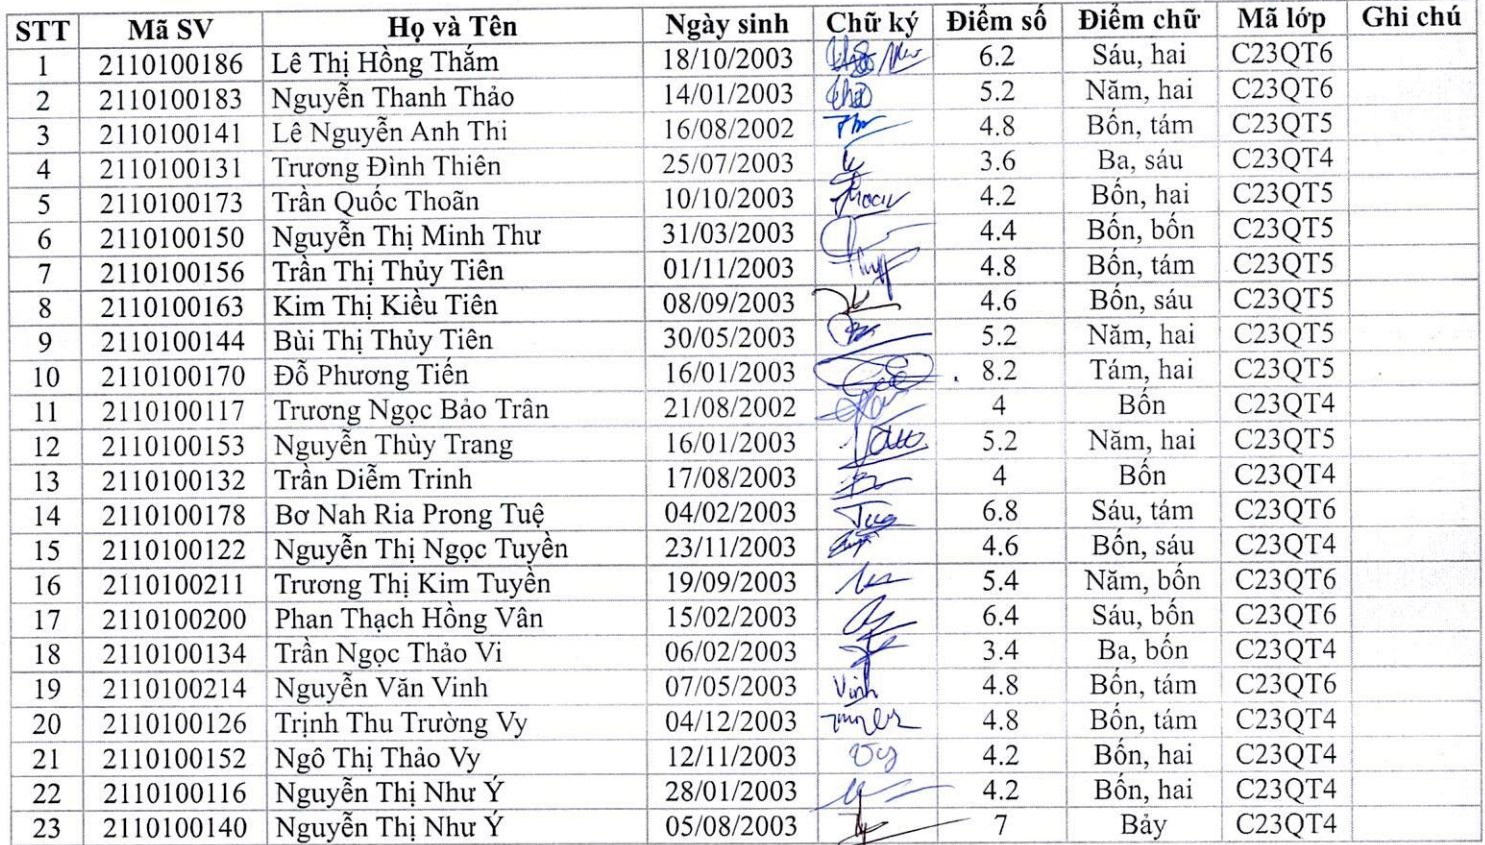 STT Mã SV Họ và Tên Ngày sinh Chữ ký Điểm số Điểm chữ Mã lớp Ghi chú
1 2110100186 Lê Thị Hồng Thắm 18/10/2003 6.2 Sáu, hai C23QT6
2 2110100183 Nguyễn Thanh Thảo 14/01/2003 5.2 Năm, hai C23QT6
3 2110100141 Lê Nguyễn Anh Thi 16/08/2002 4.8 Bốn, tám C23QT5
4 2110100131 Trương Đình Thiên 25/07/2003 3.6 Ba, sáu C23QT4
5 2110100173 Trần Quốc Thoãn 10/10/2003 4.2 Bốn, hai C23QT5
6 2110100150 Nguyễn Thị Minh Thư 31/03/2003 4.4 Bốn, bốn C23QT5
7 2110100156 Trần Thị Thủy Tiên 01/11/2003 4.8 Bốn, tám C23QT5
8 2110100163 Kim Thị Kiều Tiên 08/09/2003 4.6 Bốn, sáu C23QT5
9 2110100144 Bùi Thị Thủy Tiên 30/05/2003 5.2 Năm, hai C23QT5
10 2110100170 Đỗ Phương Tiến 16/01/2003 8.2 Tám, hai C23QT5
11 2110100117 Trương Ngọc Bảo Trân 21/08/2002 4 Bốn C23QT4
12 2110100153 Nguyễn Thùy Trang 16/01/2003 5.2 Năm, hai C23QT5
13 2110100132 Trần Diễm Trinh 17/08/2003 4 Bốn C23QT4
14 2110100178 Bơ Nah Ria Prong Tuệ 04/02/2003 6.8 Sáu, tám C23QT6
15 2110100122 Nguyễn Thị Ngọc Tuyền 23/11/2003 4.6 Bốn, sáu C23QT4
16 2110100211 Trương Thị Kim Tuyền 19/09/2003 5.4 Năm, bốn C23QT6
17 2110100200 Phan Thạch Hồng Vân 15/02/2003 6.4 Sáu, bốn C23QT6
18 2110100134 Trần Ngọc Thảo Vi 06/02/2003 3.4 Ba, bốn C23QT4
19 2110100214 Nguyễn Văn Vinh 07/05/2003 Vinh 4.8 Bốn, tám C23QT6
20 2110100126 Trịnh Thu Trường Vy 04/12/2003 4.8 Bốn, tám C23QT4
21 2110100152 Ngô Thị Thảo Vy 12/11/2003 Vy 4.2 Bốn, hai C23QT4
22 2110100116 Nguyễn Thị Như Ý 28/01/2003 4.2 Bốn, hai C23QT4
23 2110100140 Nguyễn Thị Như Ý 05/08/2003 7 Bảy C23QT4